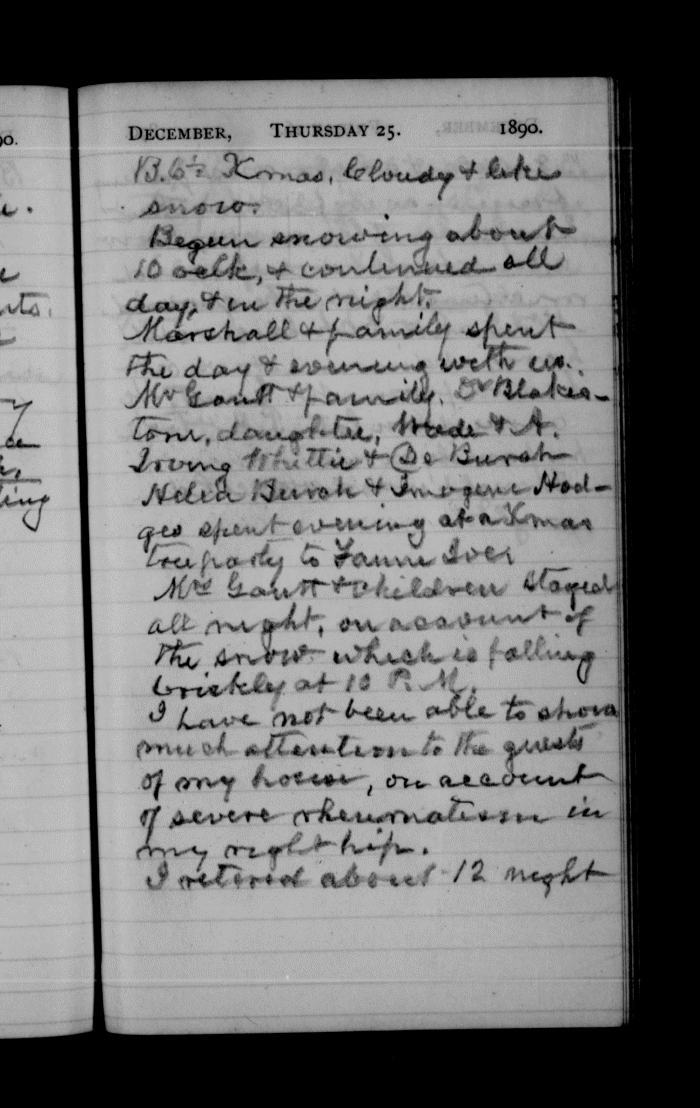 90.
DECEMBER, THURSDAY 25. 1890.
Xmas, Cloudy & like
snow.
Begun snowing about
10 oclk, & continued all
day, & in the night.
Marshall & family spent
the day & evening with us.
Mr Gantt & family. Dr Blakes-
tone, daughter, Wade & A.
Irving Whittie & De Bursh
Helen Bursh & Imogene Hod-
ges spent evening at a Xmas
tree party to Fannie Ives
Mrs Gantt & children staged
all night, on account of
the snow which is falling
briskly at 10 P.M.
I have not been able to show
much attention to the guests
of my house, on account
of severe rheumatism in
my right hip.
I retired about 12 night